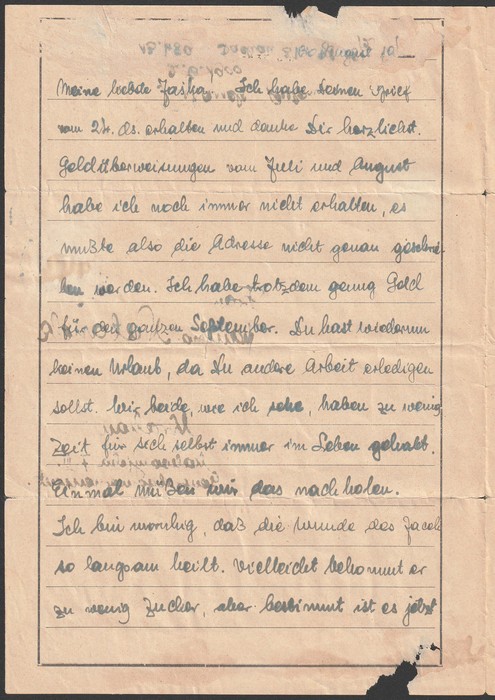 Meine liebste Jaska. Ich habe Deinen Brief
vom 24. ds. erhalten und danke Dir herzlichst.
Geldüberweisungen vom Juli und August
habe ich noch immer nicht erhalten, es
mußte also die Adresse nicht genau geschrie-
ben werden. Ich habe trotzdem genug Geld
für den ganzen September. Du hast wiederum
keinen Urlaub, da Du andere Arbeit erledigen
sollst. Wir beide, wie ich sehe, haben zu wenig
Zeit für sich selbst immer im Leben gehabt.
Einmal müßen wir das nachholen.
Ich bin unruhig, daß die Wunde das Jacob
so langsam heilt. Vielleicht bekommt er
zu wenig Zucker, aber bestimmt ist es jetzt